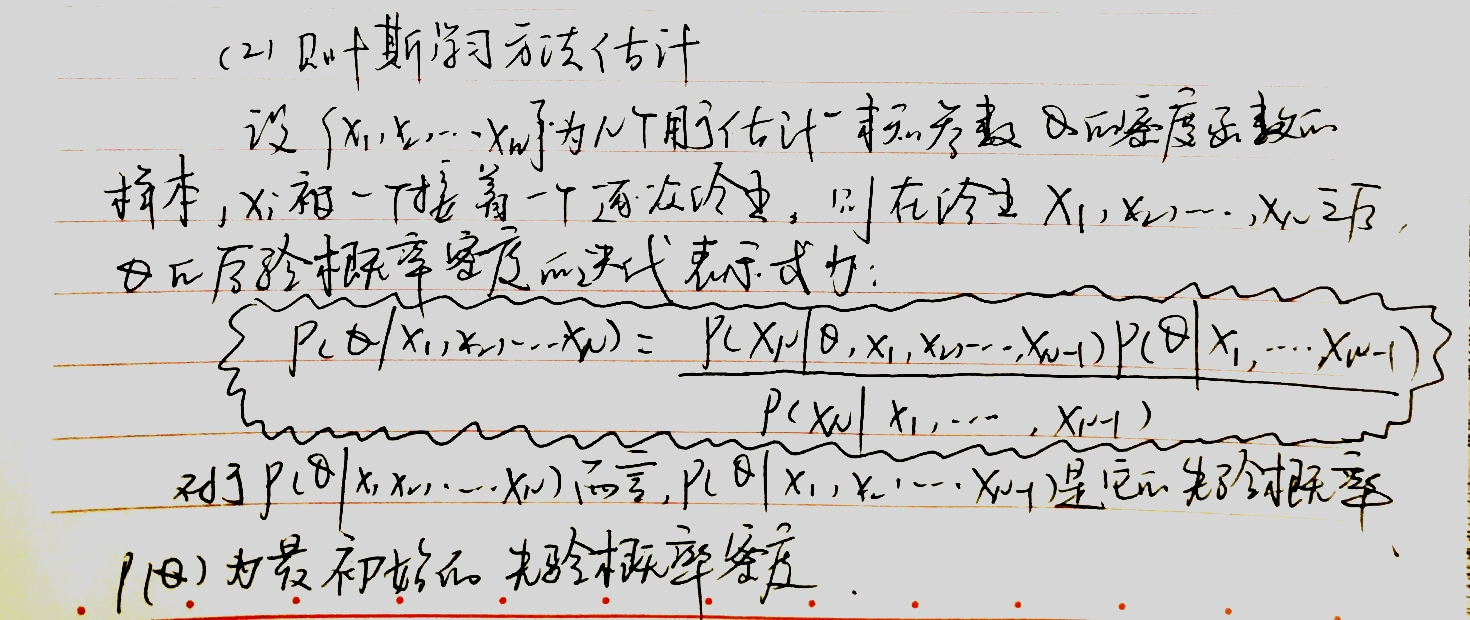 (2) 贝叶斯学习方法估计
设{x₁,x₂,…,x_N}为N个用于估计一未知参数θ的密度函数的
样本,xᵢ被一个接着一个逐次给出,则在给出 X₁,x₂,…,x_N之后,
θ的后验概率密度的迭代表示式为:
P(θ|x₁,x₂,…x_N) = P(X_N|θ,x₁,x₂,…,x_{N-1})P(θ|x₁,…,x_{N-1})
P(x_N|x₁,…,x_{N-1})
对于P(θ|x₁x₂,…x_N)而言,P(θ|x₁,x₂…x_{N-1})是它的先验概率
P(θ)为最初始的先验概率密度.